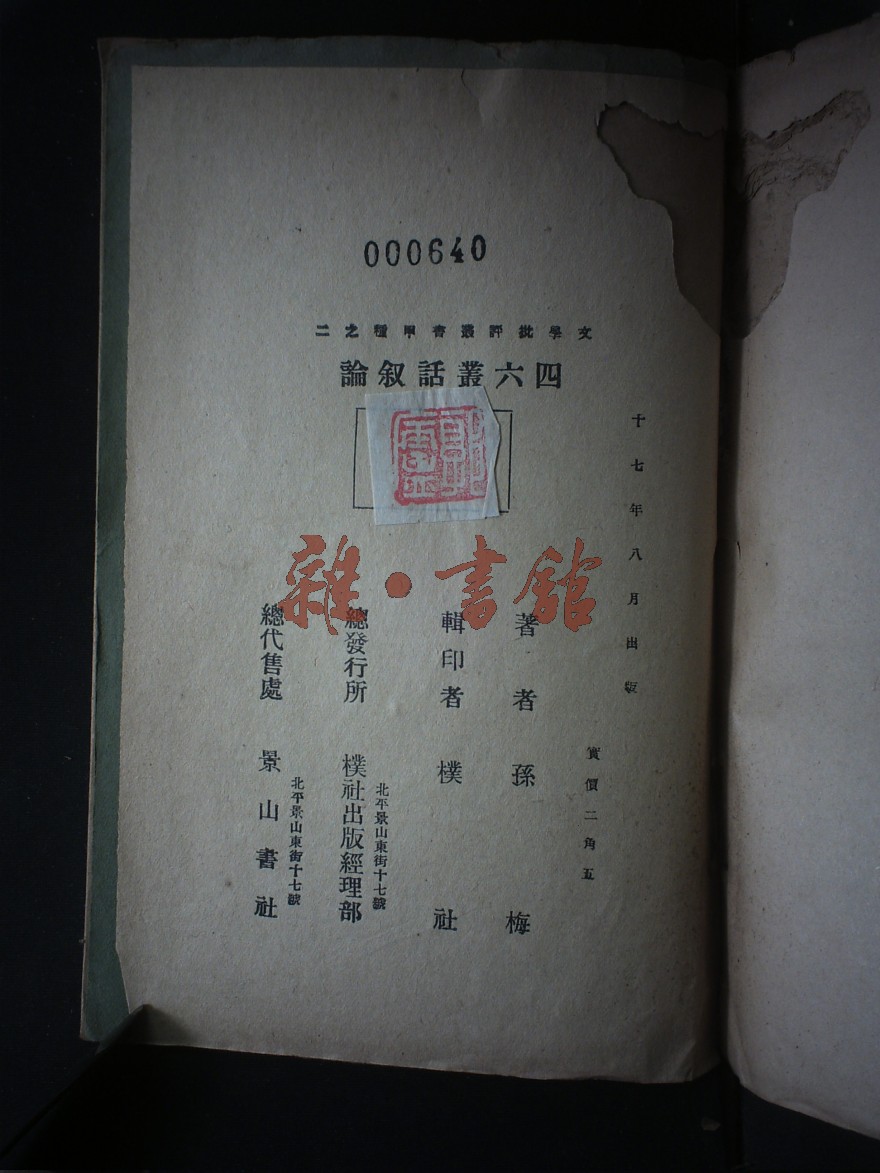 000640
文學批評叢書甲種之二
四六叢話叙論
十七年八月出版
實價二角五
著者孫梅
輯印者樸社
北平景山東街十七號
總發行所樸社出版經理部
北平景山東街十七號
總代售處景山書社
雜·書館